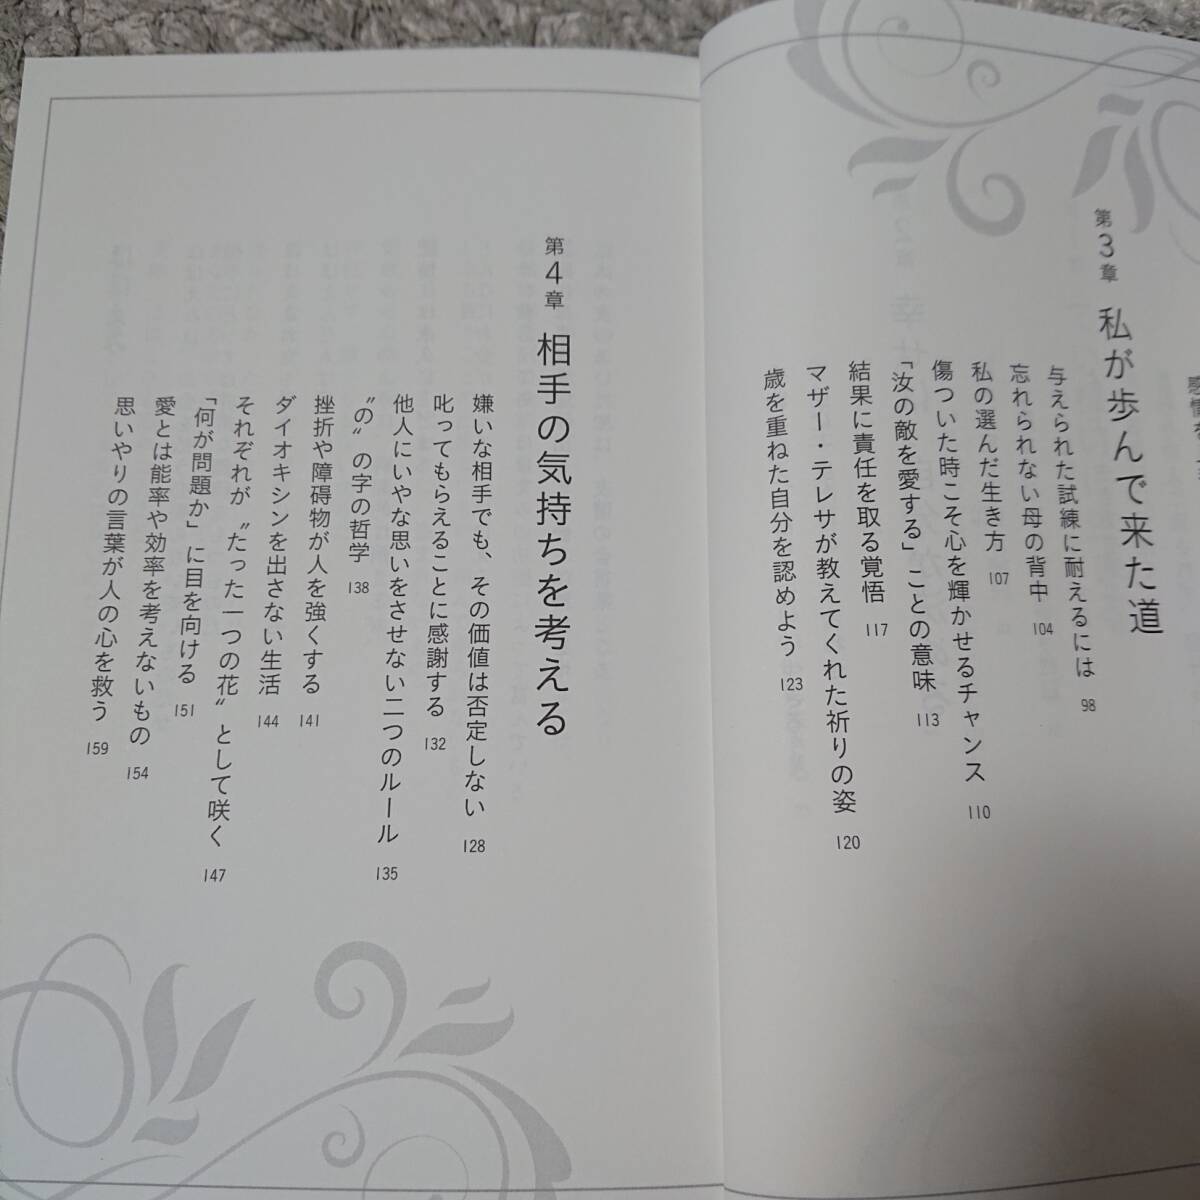 第3章 私が歩んで来た道
与えられた試練に耐えるには 98
忘れられない母の背中 104
私の選んだ生き方 107
傷ついた時こそ心を輝かせるチャンス 110
「汝の敵を愛する」ことの意味 113
結果に責任を取る覚悟 117
マザー・テレサが教えてくれた祈りの姿 120
歳を重ねた自分を認めよう 123
第4章 相手の気持ちを考える
嫌いな相手でも、その価値は否定しない 128
叱ってもらえることに感謝する 132
他人にいやな思いをさせない二つのルール 135
〝の〟の字の哲学 138
挫折や障碍物が人を強くする 141
ダイオキシンを出さない生活 144
それぞれが〝たった一つの花〟として咲く 147
「何が問題か」に目を向ける 151
愛とは能率や効率を考えないもの 154
思いやりの言葉が人の心を救う 159